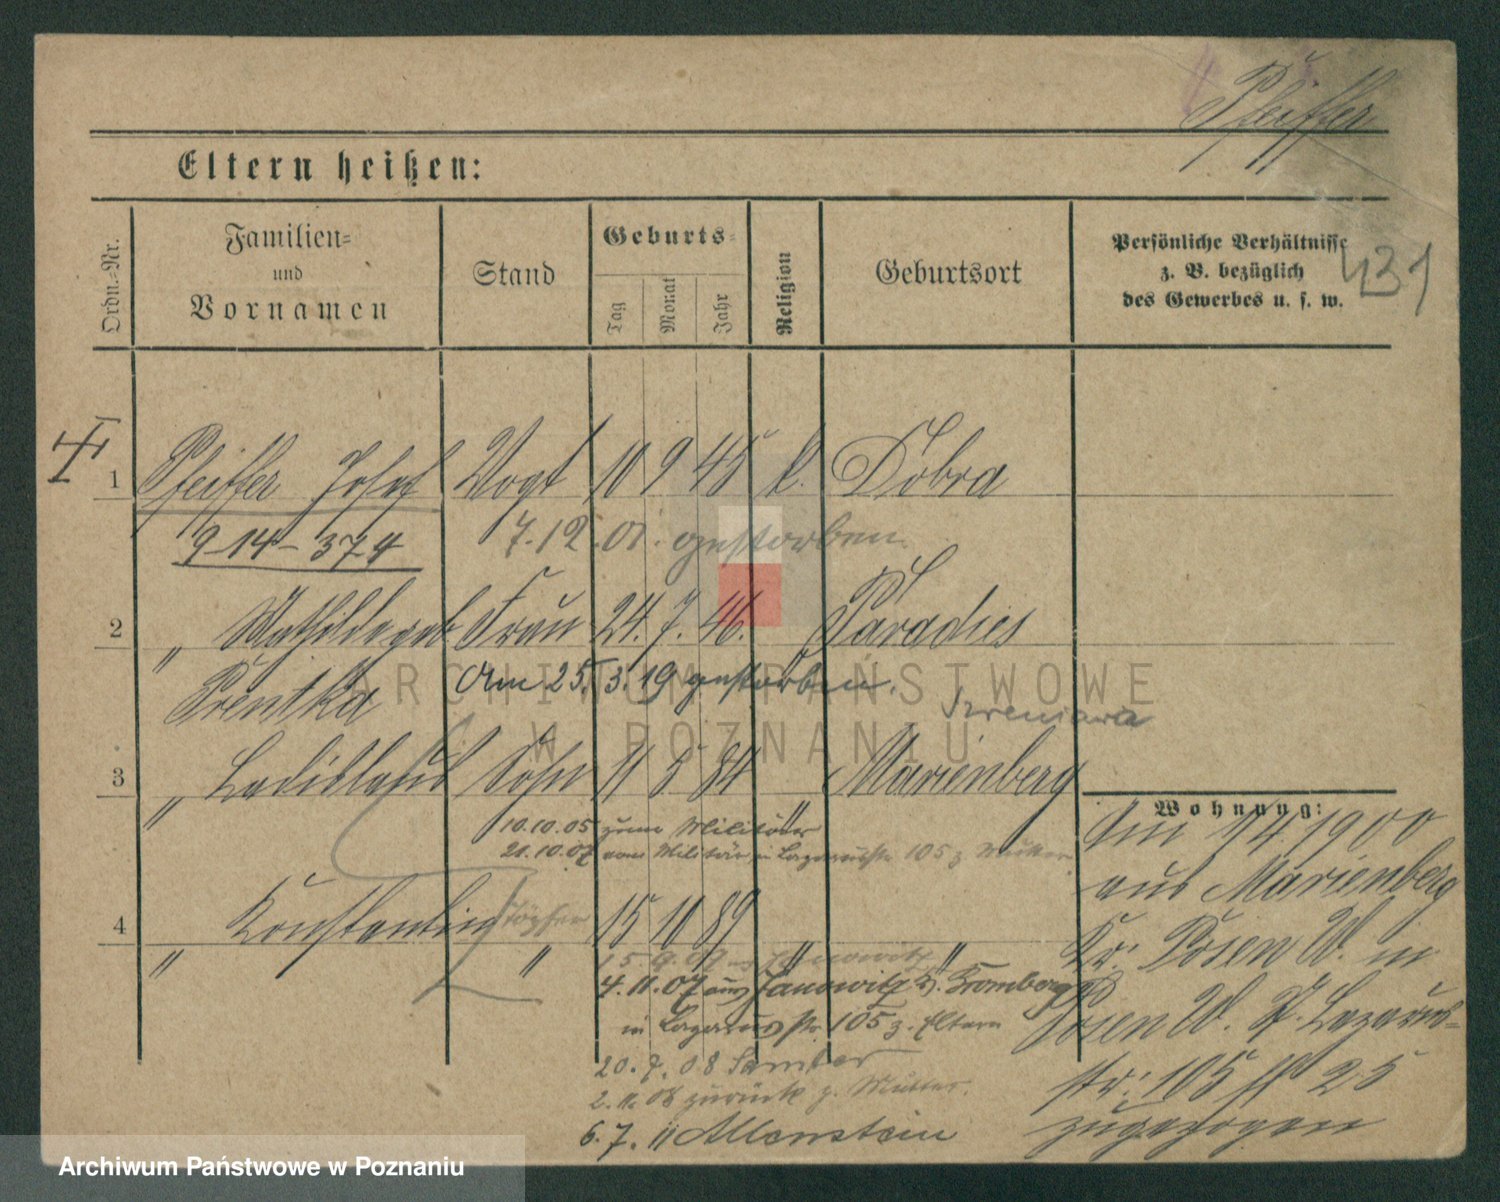 Pfeiffer
Eltern heißen:
Ordn.-Nr.
Familien-
und
Vornamen
Stand
Geburts-
Tag
Monat
Jahr
Religion
Geburtsort
Persönliche Verhältnisse
z. B. bezüglich
des Gewerbes u. s. w.
431
1 Pfeiffer Josef Vogt 10 9 45 k. Dobra
9-14-374
7.12.01. gestorben
2 " Mathilde geb Frau 24. 7. 46. Paradies
Prentka am 25.3.19 gestorben.
3 " Ladislaus Sohn 11 5 84 " Marienberg
10.10.05 zum Militär
21.10.07 vom Militär in Lazarusstr 105 z. Mutter
4 " Konstantin Töpfer " 15 10 89 " "
15.9.07 Janowitz
4.11.07 aus Janowitz Kr. Bromberg
in Lazarusstr. 105 z. Eltern
20.7.08 Samter
2.11.08 zurück z. Mutter.
6.7.11 Allenstein
Wohnung:
Am 1/4.1900
aus Marienberg
Kr. Posen W. in
Posen W. St. Lazarus-
str. 105 25
zugezogen
ARCHIWUM PAŃSTWOWE
W POZNANIU
Archiwum Państwowe w Poznaniu